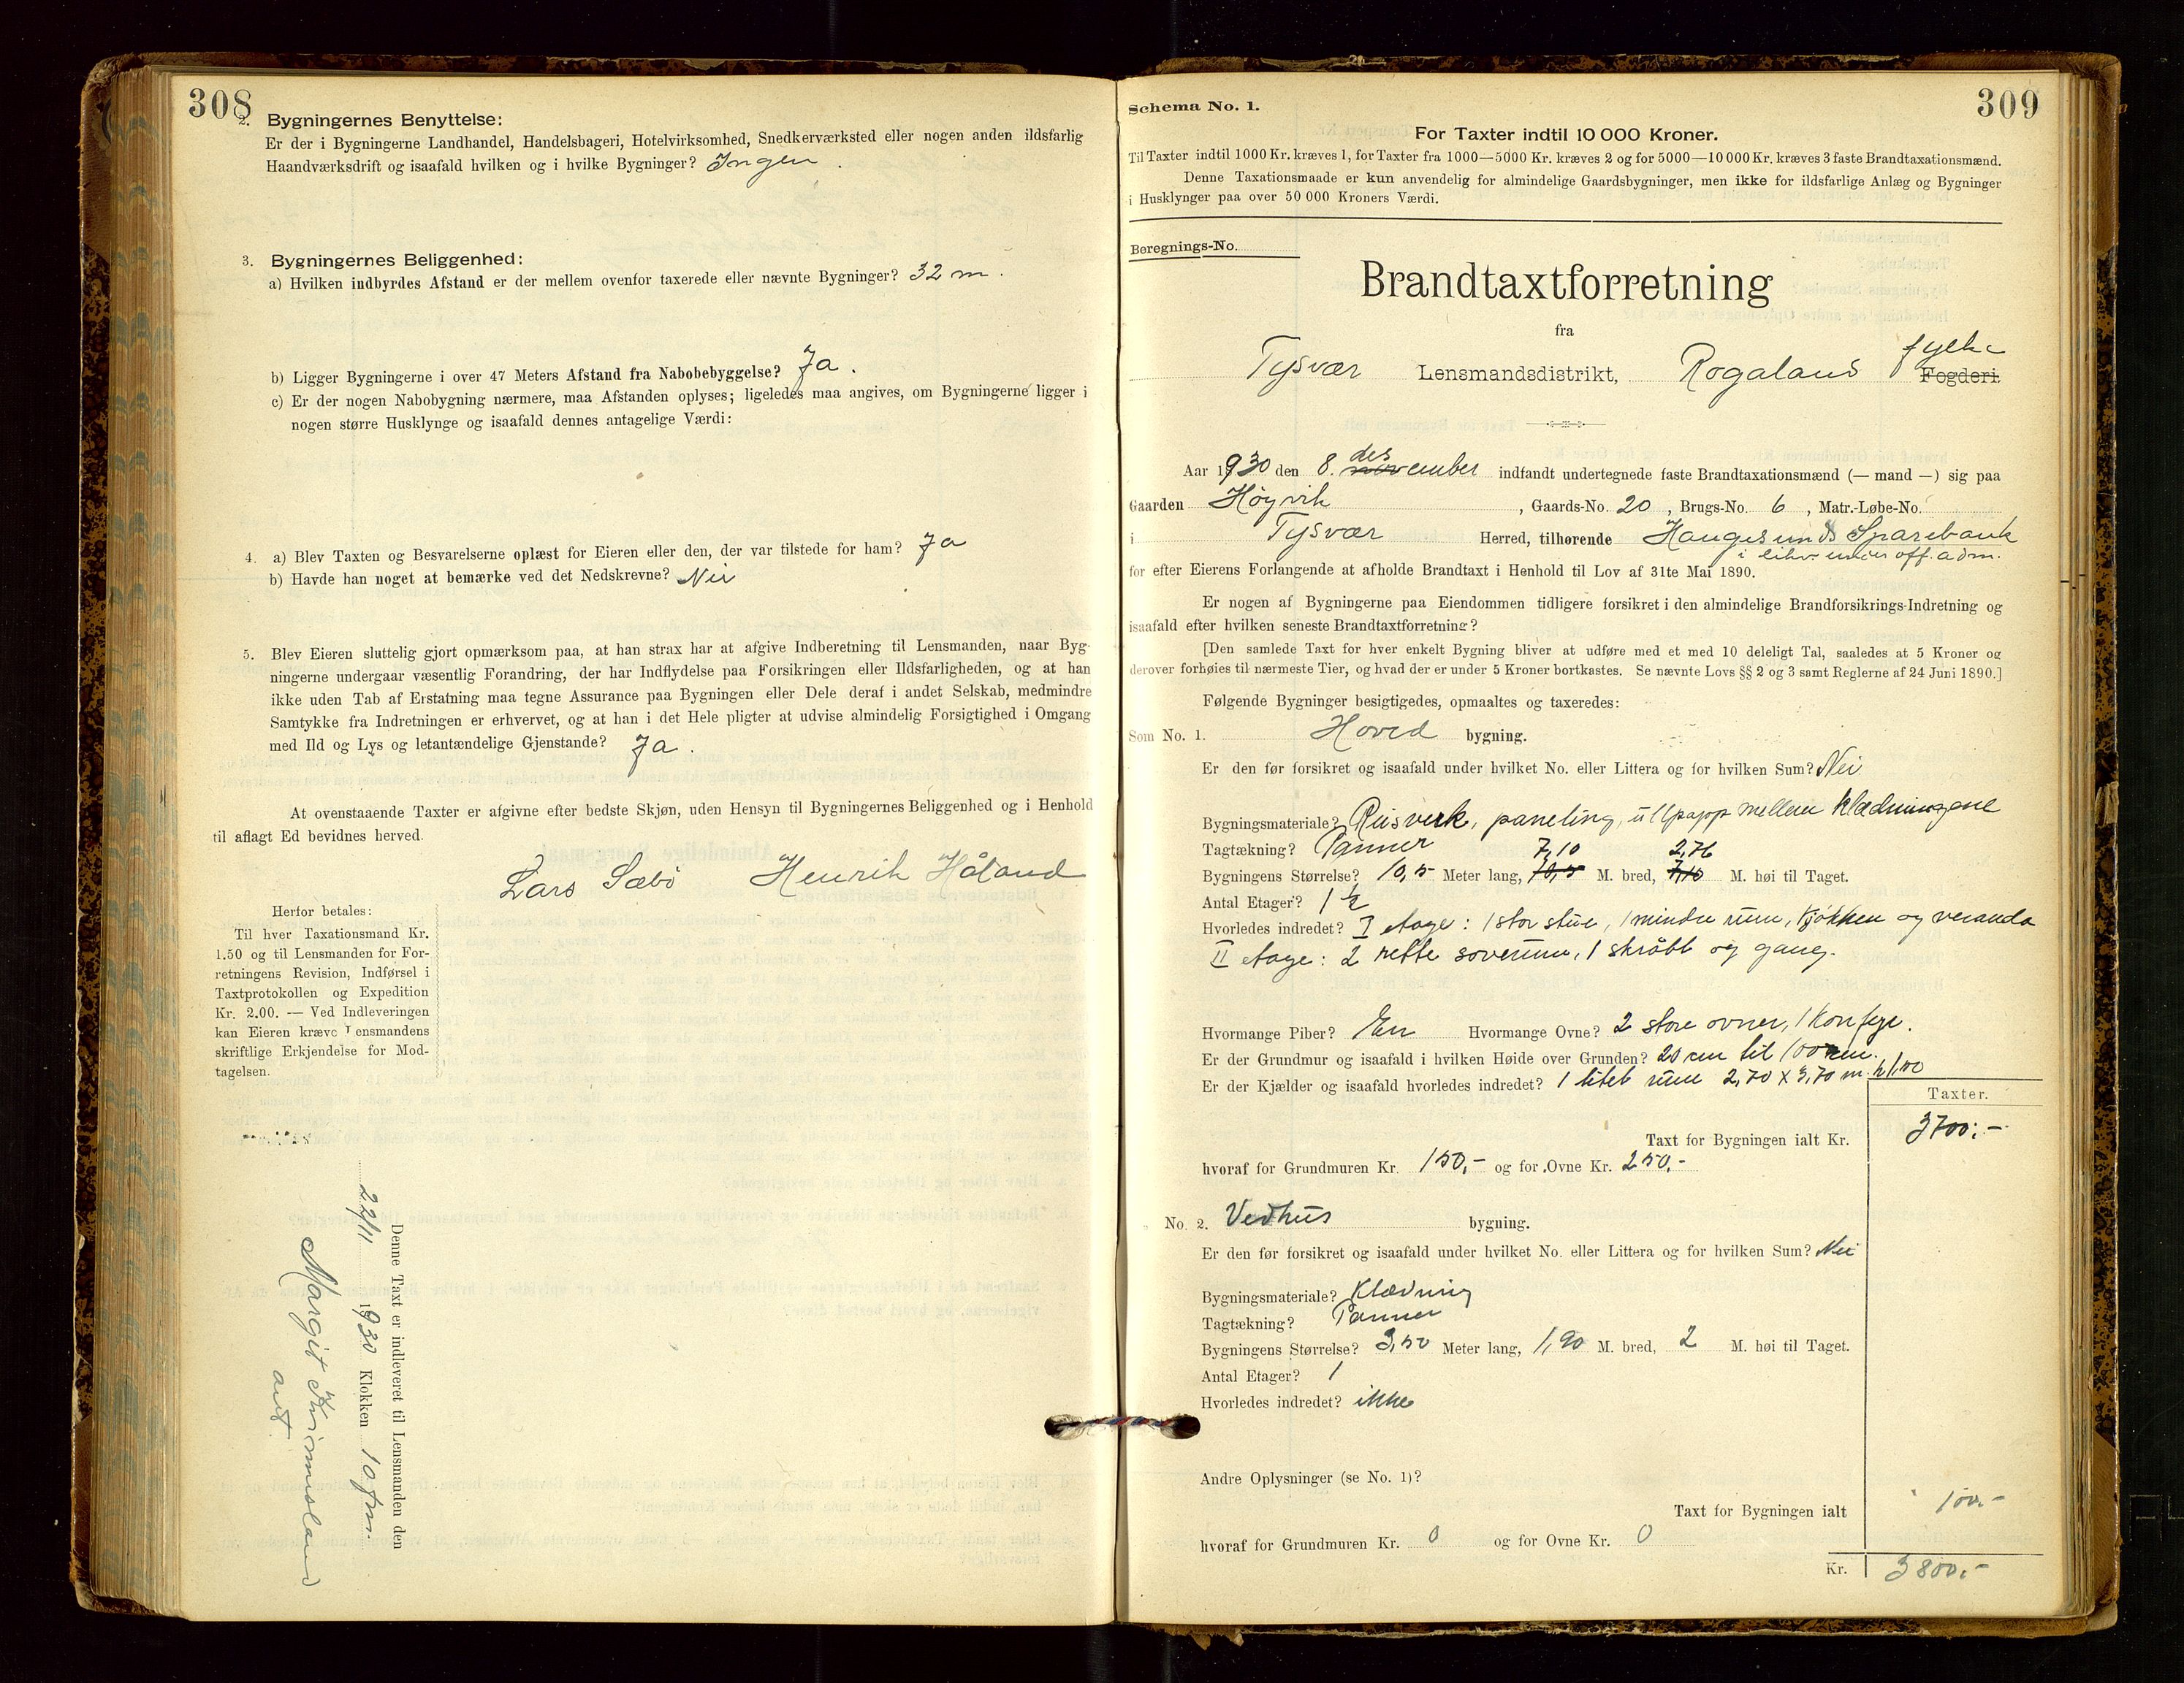 308
2. Bygningernes Benyttelse:
Er der i Bygningerne Landhandel, Handelsbageri, Hotelvirksomhed, Snedkerværksted eller nogen anden ildsfarlig
Haandværksdrift og isaafald hvilken og i hvilke Bygninger? Ingen.
3. Bygningernes Beliggenhed:
a) Hvilken indbyrdes Afstand er der mellem ovenfor taxerede eller nævnte Bygninger? 32 m.
b) Ligger Bygningerne i over 47 Meters Afstand fra Nabobebyggelse? Ja.
c) Er der nogen Nabobygning nærmere, maa Afstanden oplyses; ligeledes maa angives, om Bygningerne ligger i
nogen større Husklynge og isaafald dennes antagelige Værdi:
4. a) Blev Taxten og Besvarelserne oplæst for Eieren eller den, der var tilstede for ham? Ja
b) Havde han noget at bemærke ved det Nedskrevne? Nei
5. Blev Eieren sluttelig gjort opmærksom paa, at han strax har at afgive Indberetning til Lensmanden, naar Byg-
ningerne undergaar væsentlig Forandring, der har Indflydelse paa Forsikringen eller Ildsfarligheden, og at han
ikke uden Tab af Erstatning maa tegne Assurance paa Bygningen eller Dele deraf i andet Selskab, medmindre
Samtykke fra Indretningen er erhvervet, og at han i det Hele pligter at udvise almindelig Forsigtighed i Omgang
med Ild og Lys og letantændelige Gjenstande? Ja.
At ovenstaaende Taxter er afgivne efter bedste Skjøn, uden Hensyn til Bygningernes Beliggenhed og i Henhold
til aflagt Ed bevidnes herved.
Lars Sæbö Henrik Håland
Herfor betales:
Til hver Taxationsmand Kr.
1.50 og til Lensmanden for For-
retningens Revision, Indførsel i
Taxtprotokollen og Expedition
Kr. 2.00. — Ved Indleveringen
kan Eieren kræve Lensmandens
skriftlige Erkjendelse for Mod-
tagelsen.
Denne Taxt er indleveret til Lensmanden den
22/11 1930 Klokken 10 fm.
Margit Grimmsland
aut.
309
Schema No. 1.
For Taxter indtil 10 000 Kroner.
Til Taxter indtil 1000 Kr. kræves 1, for Taxter fra 1000—5000 Kr. kræves 2 og for 5000—10 000 Kr. kræves 3 faste Brandtaxationsmænd.
Denne Taxationsmaade er kun anvendelig for almindelige Gaardsbygninger, men ikke for ildsfarlige Anlæg og Bygninger
i Husklynger paa over 50 000 Kroners Værdi.
Beregnings-No.
Brandtaxtforretning
fra
Tysvær Lensmandsdistrikt, Rogaland fylke Fogderi.
Aar 1930 den 8. november des indfandt undertegnede faste Brandtaxationsmænd (— mand —) sig paa
Gaarden Höyvik, Gaards-No. 20, Brugs-No. 6, Matr.-Løbe-No.
i Tysvær Herred, tilhørende Haugesunds Sparebank
i likv. under off. adm.
for efter Eierens Forlangende at afholde Brandtaxt i Henhold til Lov af 31te Mai 1890.
Er nogen af Bygningerne paa Eiendommen tidligere forsikret i den almindelige Brandforsikrings-Indretning og
isaafald efter hvilken seneste Brandtaxtforretning?
[Den samlede Taxt for hver enkelt Bygning bliver at udføre med et med 10 deleligt Tal, saaledes at 5 Kroner og
derover forhøies til nærmeste Tier, og hvad der er under 5 Kroner bortkastes. Se nævnte Lovs §§ 2 og 3 samt Reglerne af 24 Juni 1890.]
Følgende Bygninger besigtigedes, opmaaltes og taxeredes:
Som No. 1. Hoved bygning.
Er den før forsikret og isaafald under hvilket No. eller Littera og for hvilken Sum? Nei
Bygningsmateriale? Reisverk, paneling, ullpapp mellem klædningene
Tagtækning? Panner
7,10 2,76
Bygningens Størrelse? 10,5 Meter lang, 10,5 M. bred, 7,10 M. høi til Taget.
Antal Etager? 1 ½
Hvorledes indredet? I etage: 1 stor stue, 1 mindre rum, kjökken og veranda
II etage: 2 rette soverum, 1 skråbt og gang.
Hvormange Piber? En Hvormange Ovne? 2 store ovner, 1 komfyr.
Er der Grundmur og isaafald i hvilken Høide over Grunden? 20 cm til 100 cm.
Er der Kjælder og isaafald hvorledes indredet? 1 litet rum 2,70 x 3,70 m. h 1,80
Taxter.
Taxt for Bygningen ialt Kr. 3700:-
hvoraf for Grundmuren Kr. 150,- og for Ovne Kr. 250,-
No. 2. Vedhus bygning.
Er den før forsikret og isaafald under hvilket No. eller Littera og for hvilken Sum? Nei
Bygningsmateriale? Klædning
Tagtækning? Panner
Bygningens Størrelse? 3,50 Meter lang, 1,90 M. bred, 2 M. høi til Taget.
Antal Etager? 1
Hvorledes indredet? ikke
Andre Oplysninger (se No. 1)?
Taxt for Bygningen ialt 100.-
hvoraf for Grundmuren Kr. 0 og for Ovne Kr. 0
Kr. 3800.-